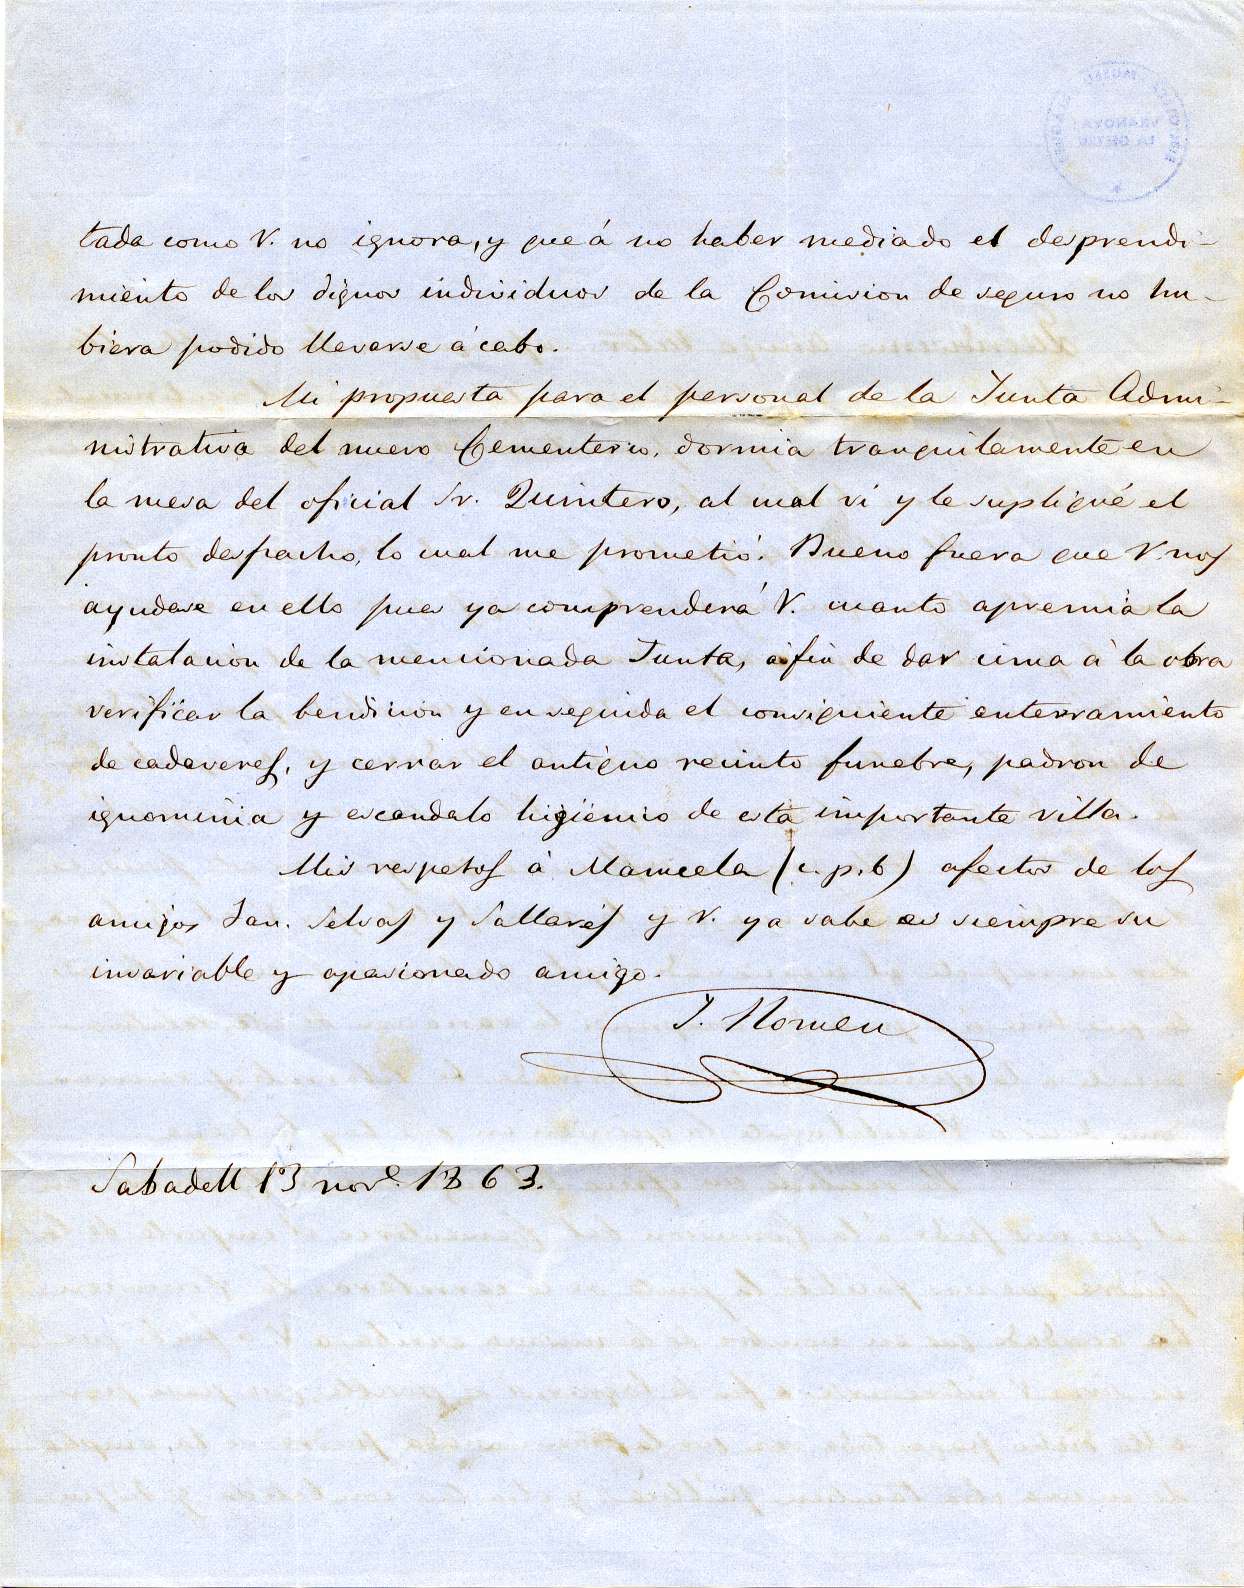 tada como V. no ignora, y que á no haber mediado el desprendi-
miento de los dignos individuos de la Comision de seguro no hu-
biera podido llevarse á cabo.
Mi propuesta para el personal de la Junta Admi-
nistrativa del nuevo Cementerio, dormia tranquilamente en
la mesa del oficial Sr. Quintero, al cual ví y le supliqué el
pronto despacho, lo cual me prometió. Bueno fuera que V. nos
ayudase en ello pues ya comprenderá V. cuanto apremia la
instalacion de la mencionada Junta, á fin de dar cima á la obra
verificar la bendicion y en seguida el consiguiente enterramiento
de cadaveres, y cerrar el antiguo recinto funebre, padron de
ignominia y escandalo higiénico de esta importante villa.
Mis respetos á Manuela (c.p.b) afectos de los
amigos Jan. Selvas y Sallarés y V. ya sabe es siempre su
invariable y apasionado amigo.
J. Nomeu
Sabadell 13 nove. 1863.